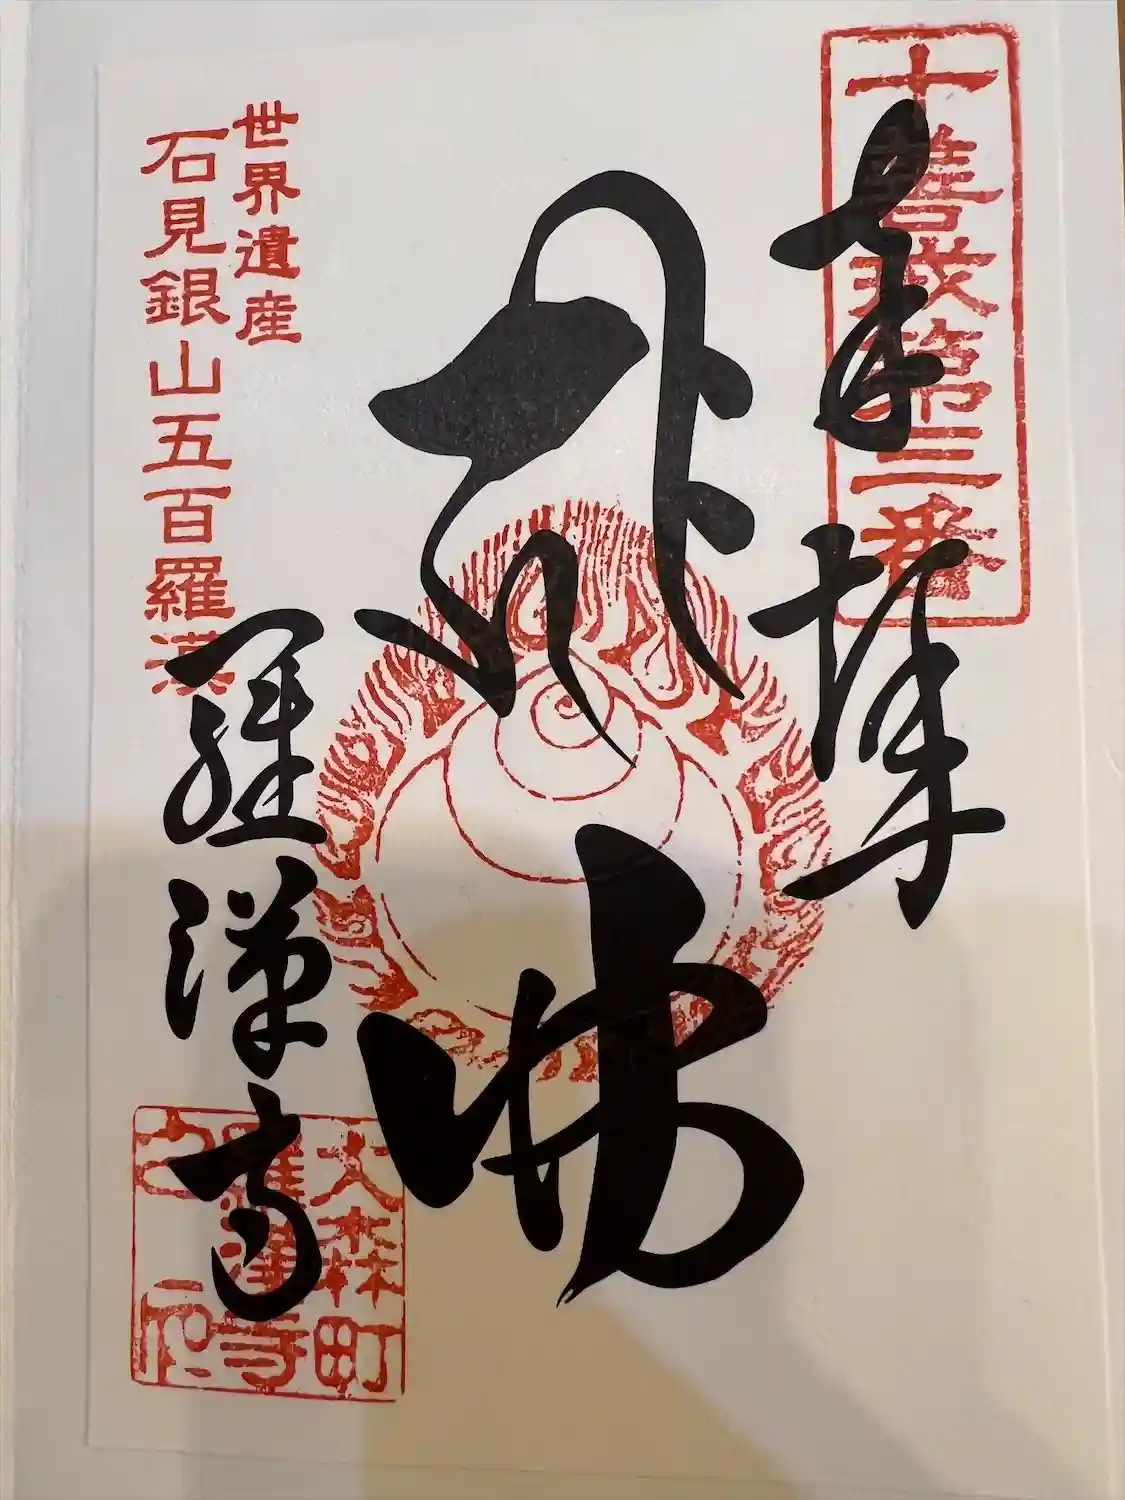 十善戒第三番
奉拝
佛
世界遺産
石見銀山五百羅漢
羅漢寺
大森町
羅漢寺
之印